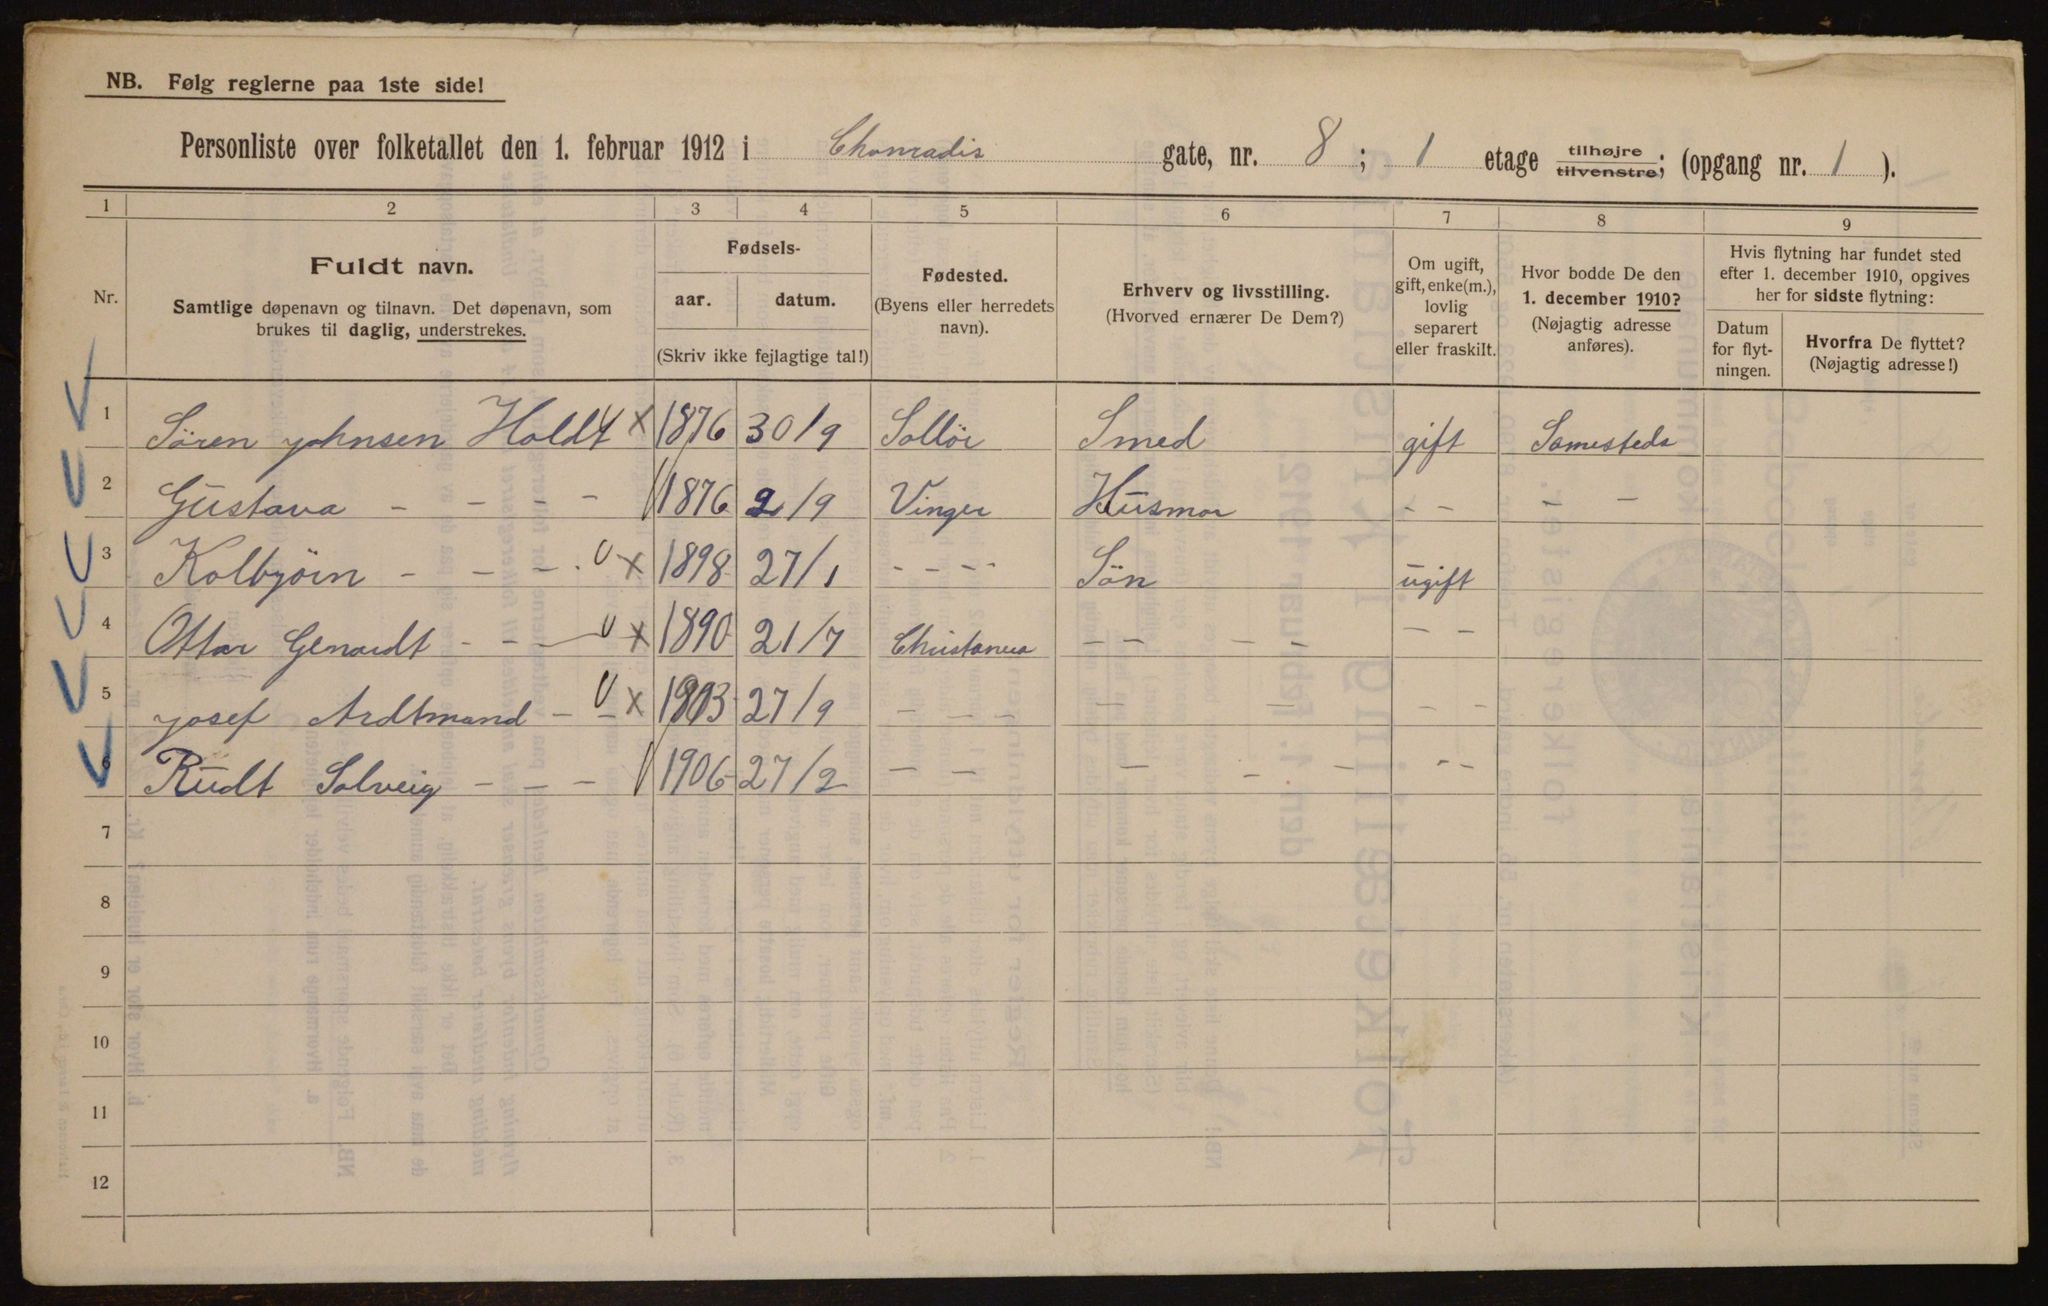 NB. Følg reglerne paa 1ste side!
Personliste over folketallet den 1. februar 1912 i Chonradis gate, nr. 8 ; 1 etage tilhøjre tilvenstre; (opgang nr. 1 ).
1 2 3 4 5 6 7 8 9
Nr.
Fuldt navn.
Samtlige døpenavn og tilnavn. Det døpenavn, som
brukes til daglig, understrekes.
Fødsels-
aar. datum.
(Skriv ikke fejlagtige tal!)
Fødested.
(Byens eller herredets
navn).
Erhverv og livsstilling.
(Hvorved ernærer De Dem?)
Om ugift,
gift, enke(m.),
lovlig
separert
eller fraskilt.
Hvor bodde De den
1. december 1910?
(Nøjagtig adresse
anføres).
Hvis flytning har fundet sted
efter 1. december 1910, opgives
her for sidste flytning:
Datum
for flyt-
ningen.
Hvorfra De flyttet?
(Nøjagtig adresse!)
1 Sören Johnsen Holdt x 1876 30/9 Sollör Smed gift Samesteds
2 Gustava - - - 1876 2/9 Vinger Husmor - - - -
3 Kolbjörn - - - U x 1898 27/1 - - - - Sön ugift
4 Ottar Genardt - - - U x 1890 21/7 Christania - - - - - -
5 Josef Ardtmand - - U x 1903 27/9 - - - - - - -
6 Rudt Solveig - - - 1906 27/2 - - - - - - -
7
8
9
10
11
12